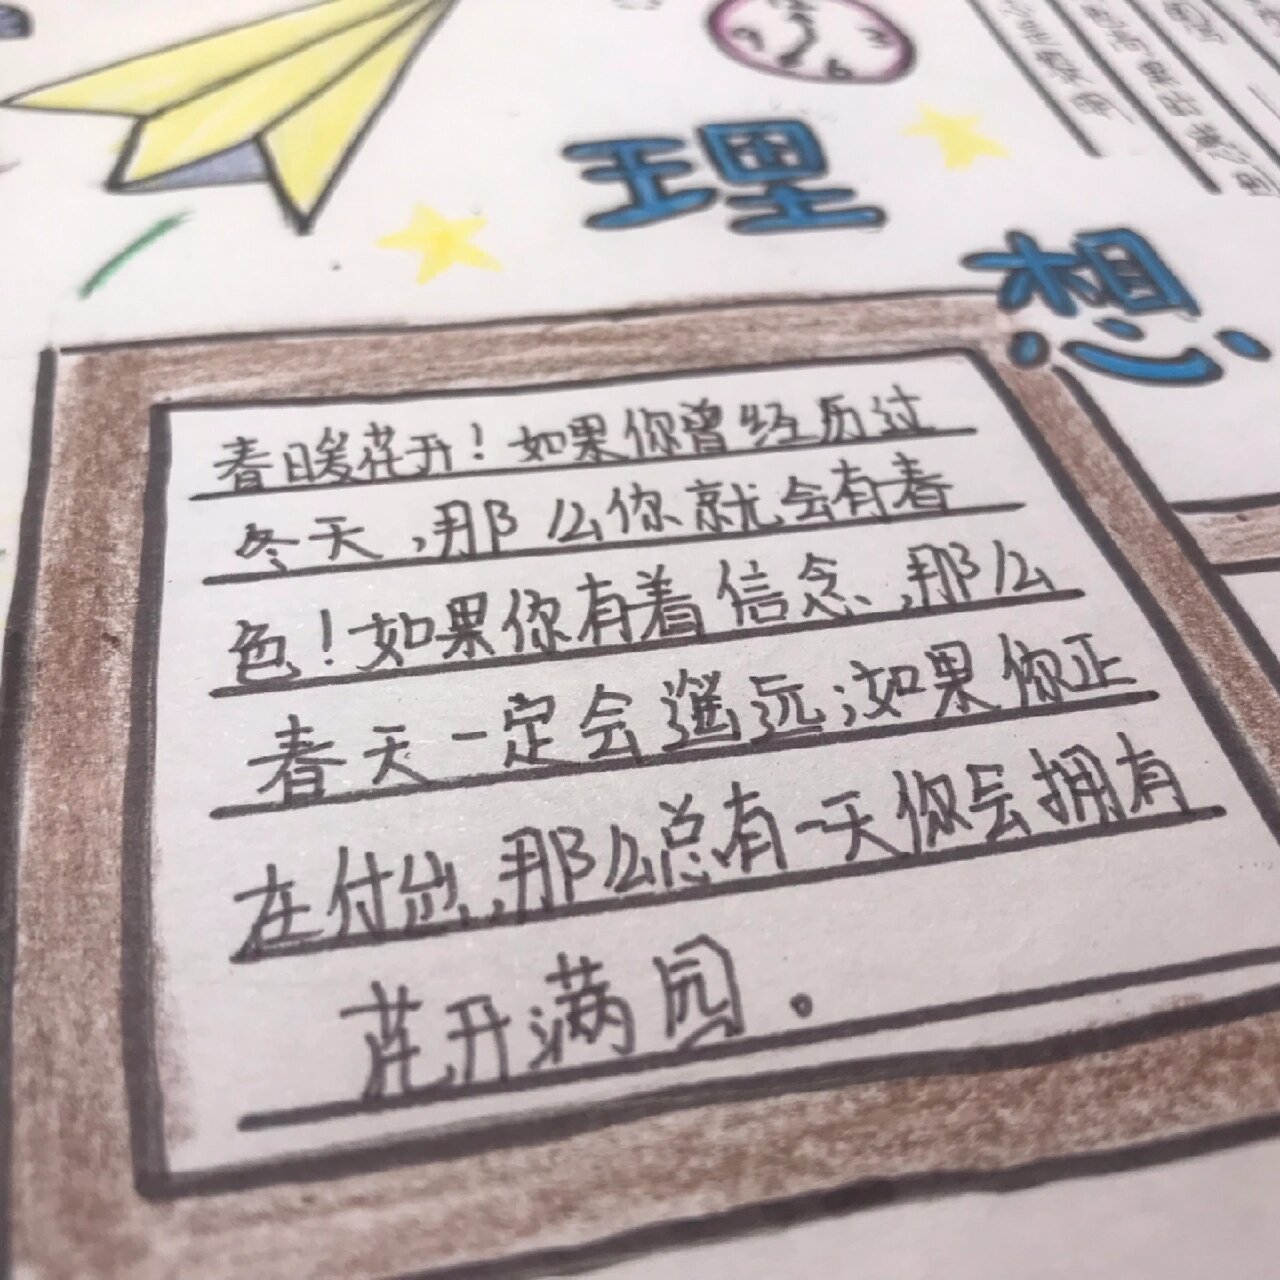 理
想
春暖花开！如果你曾经历过
冬天，那么你就会有春
色！如果你有着信念，那么
春天一定会遥远；如果你正
在付出，那么总有一天你会拥有
花开满园。